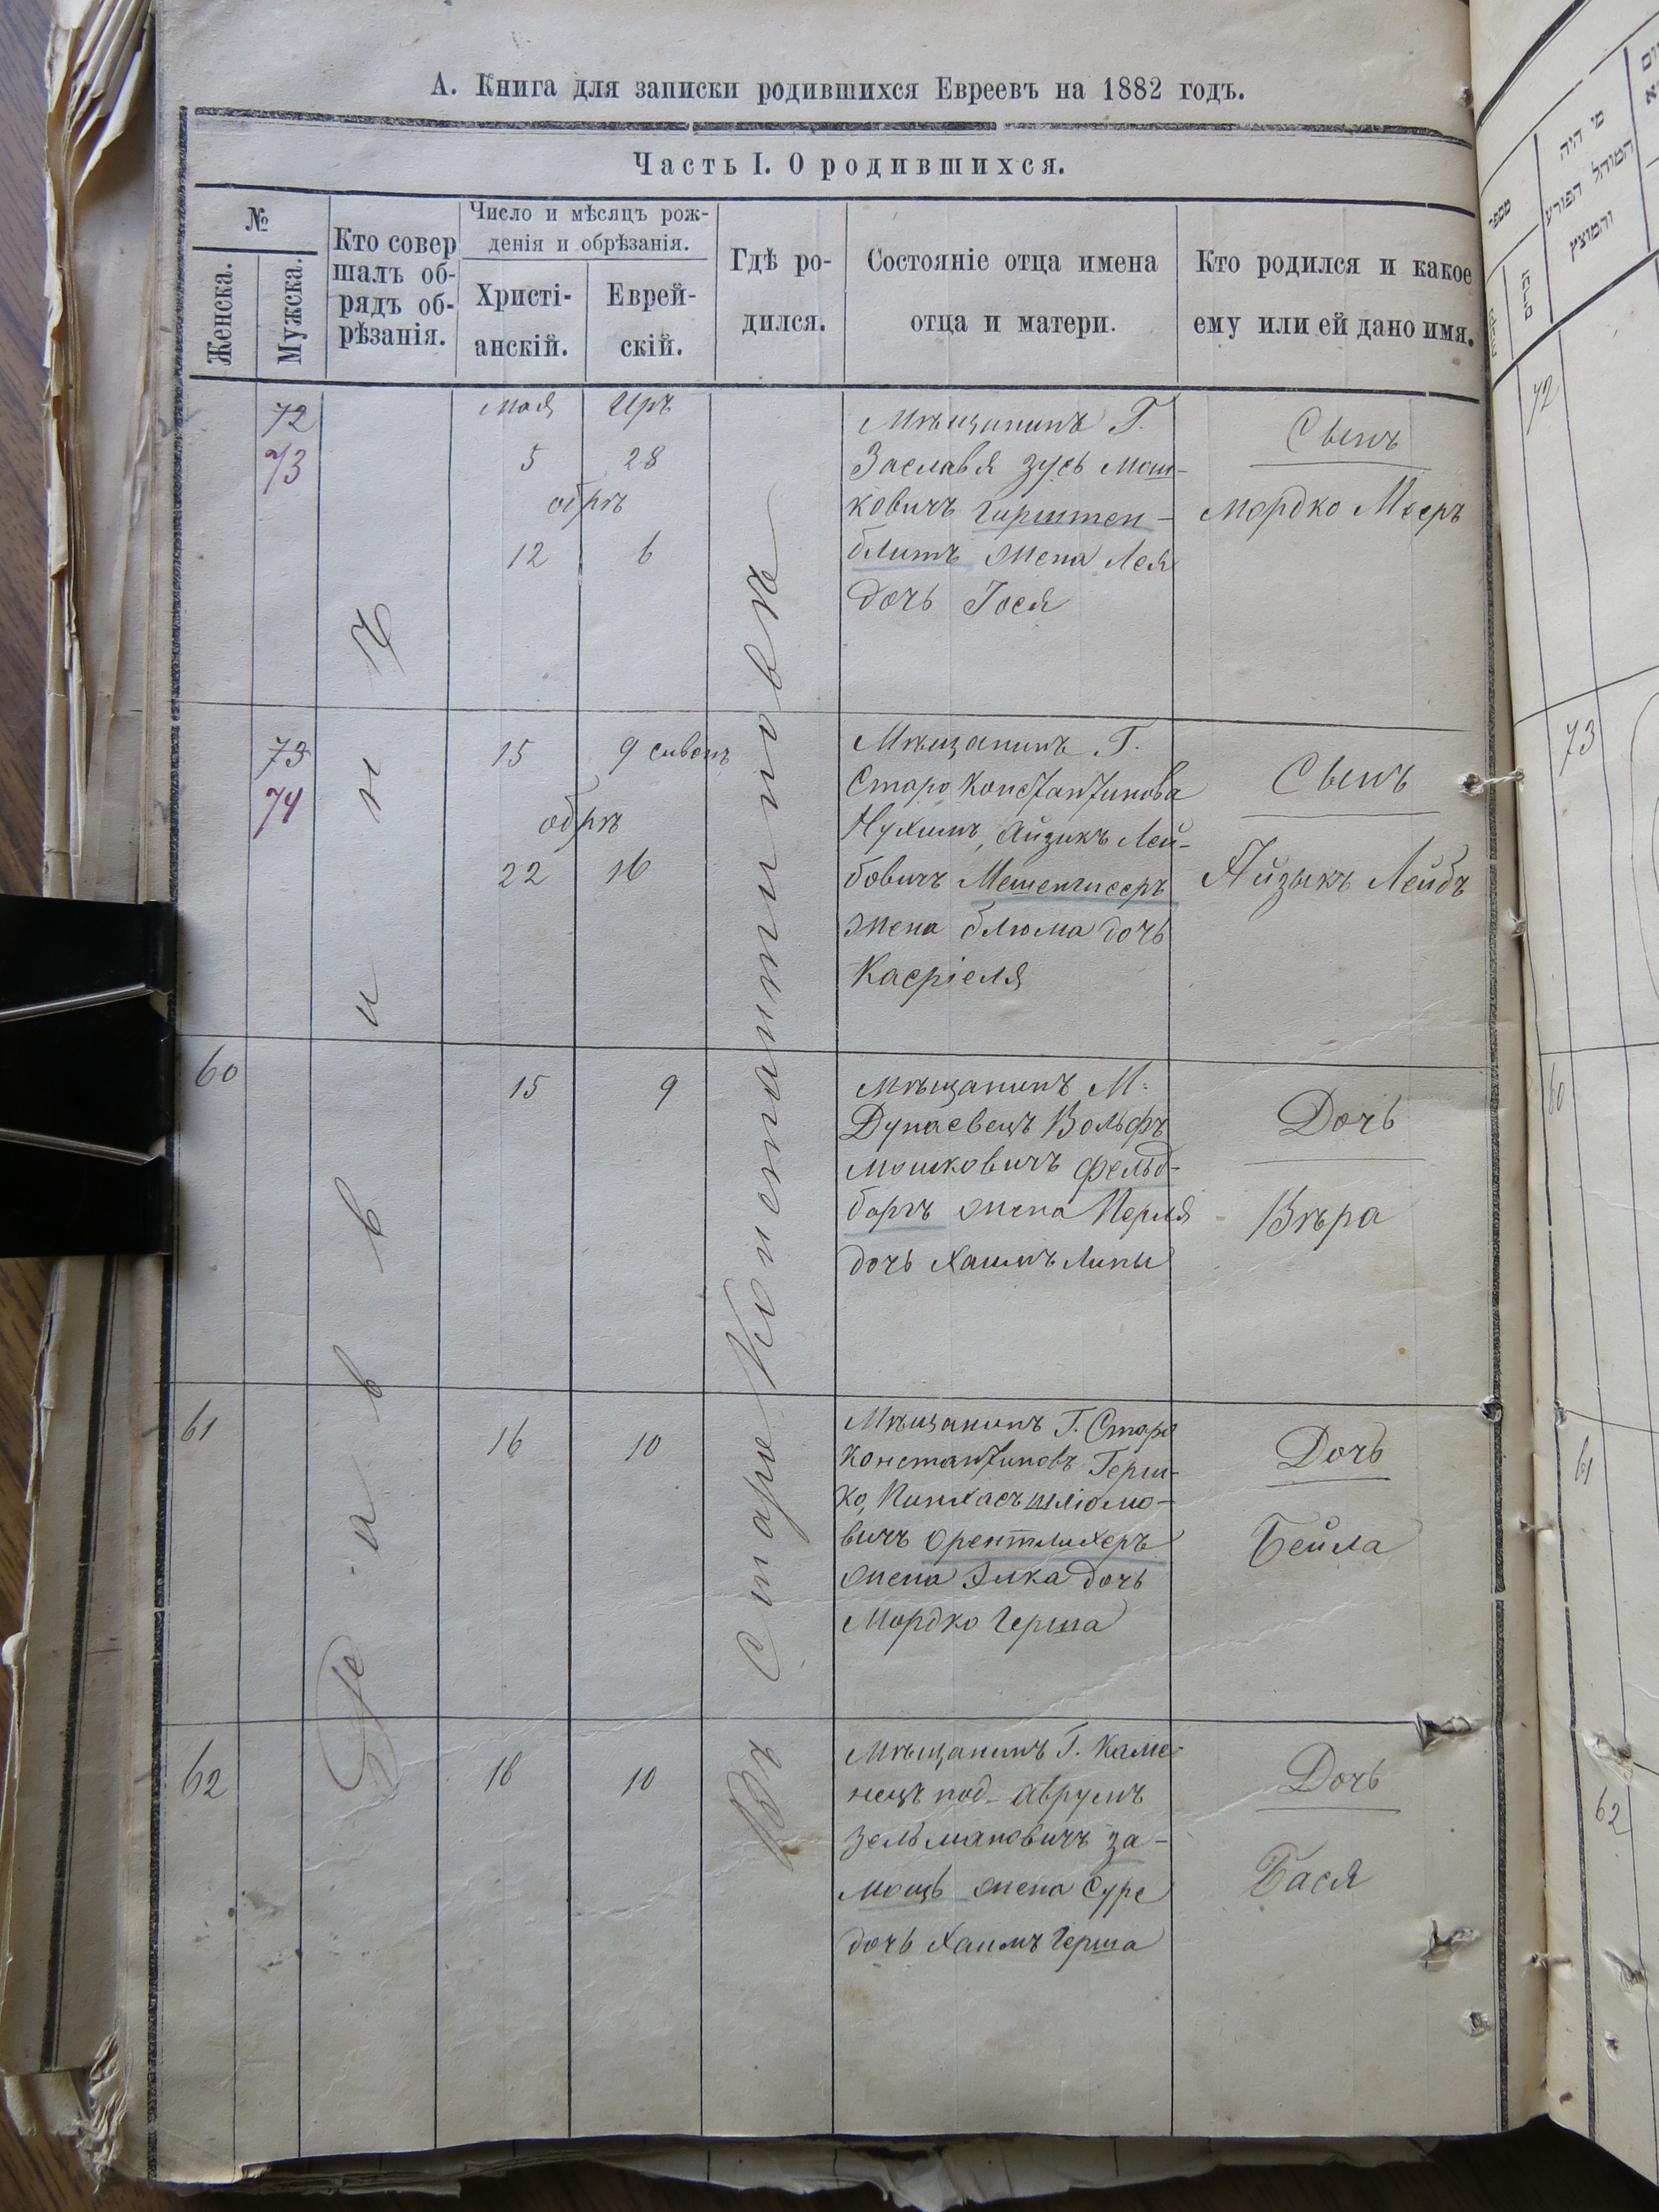 А. Книга для записки родившихся Евреевъ на 1882 годъ.
Часть I. О родившихся.
№
Женска.
Мужска.
Кто совер
шалъ об-
рядъ об-
рѣзанія.
Число и мѣсяцъ рож-
денія и обрѣзанія.
Христі-
анскій.
Еврей-
скій.
Гдѣ ро-
дился.
Состояніе отца имена
отца и матери.
Кто родился и какое
ему или ей дано имя.
Раввинъ
Въ Старо Константиновѣ
72
73
мая
Иръ
5
28
обрѣ
12
6
Мѣщанинъ Г.
Заславя Зусь Мош-
ковичъ Гирштен-
блитъ жена Лея
дочь Іося
Сынъ
Мордко Мееръ
73
74
15
9 сивонъ
обрѣ
22
16
Мѣщанинъ Г.
Старо Константинова
Нухимъ, Айзикъ Лей-
бовичъ Мешенгисеръ
жена Блюма дочь
Касріеля
Сынъ
Айзыкъ Лейбъ
60
15
9
Мѣщанинъ М.
Дунаевецъ Вольфъ
Мошковичъ Фельд-
баргъ жена Перля
дочь Хаимъ Липы
Дочь
Вѣра
61
16
10
Мѣщанинъ Г. Старо
Константиновъ Герш-
ко, Пинхасъ Шліомо-
вичъ Орентлихеръ
жена Элка дочь
Мордко Герша
Дочь
Бейла
62
16
10
Мѣщанинъ Г. Каме-
нецъ под- Аврумъ
Зельмановичъ За-
мощь жена Суре
дочь Хаимъ Герша
Дочь
Бася
מספר
מי היה
המוהל הפורע
והמוצץ
72
73
60
61
62